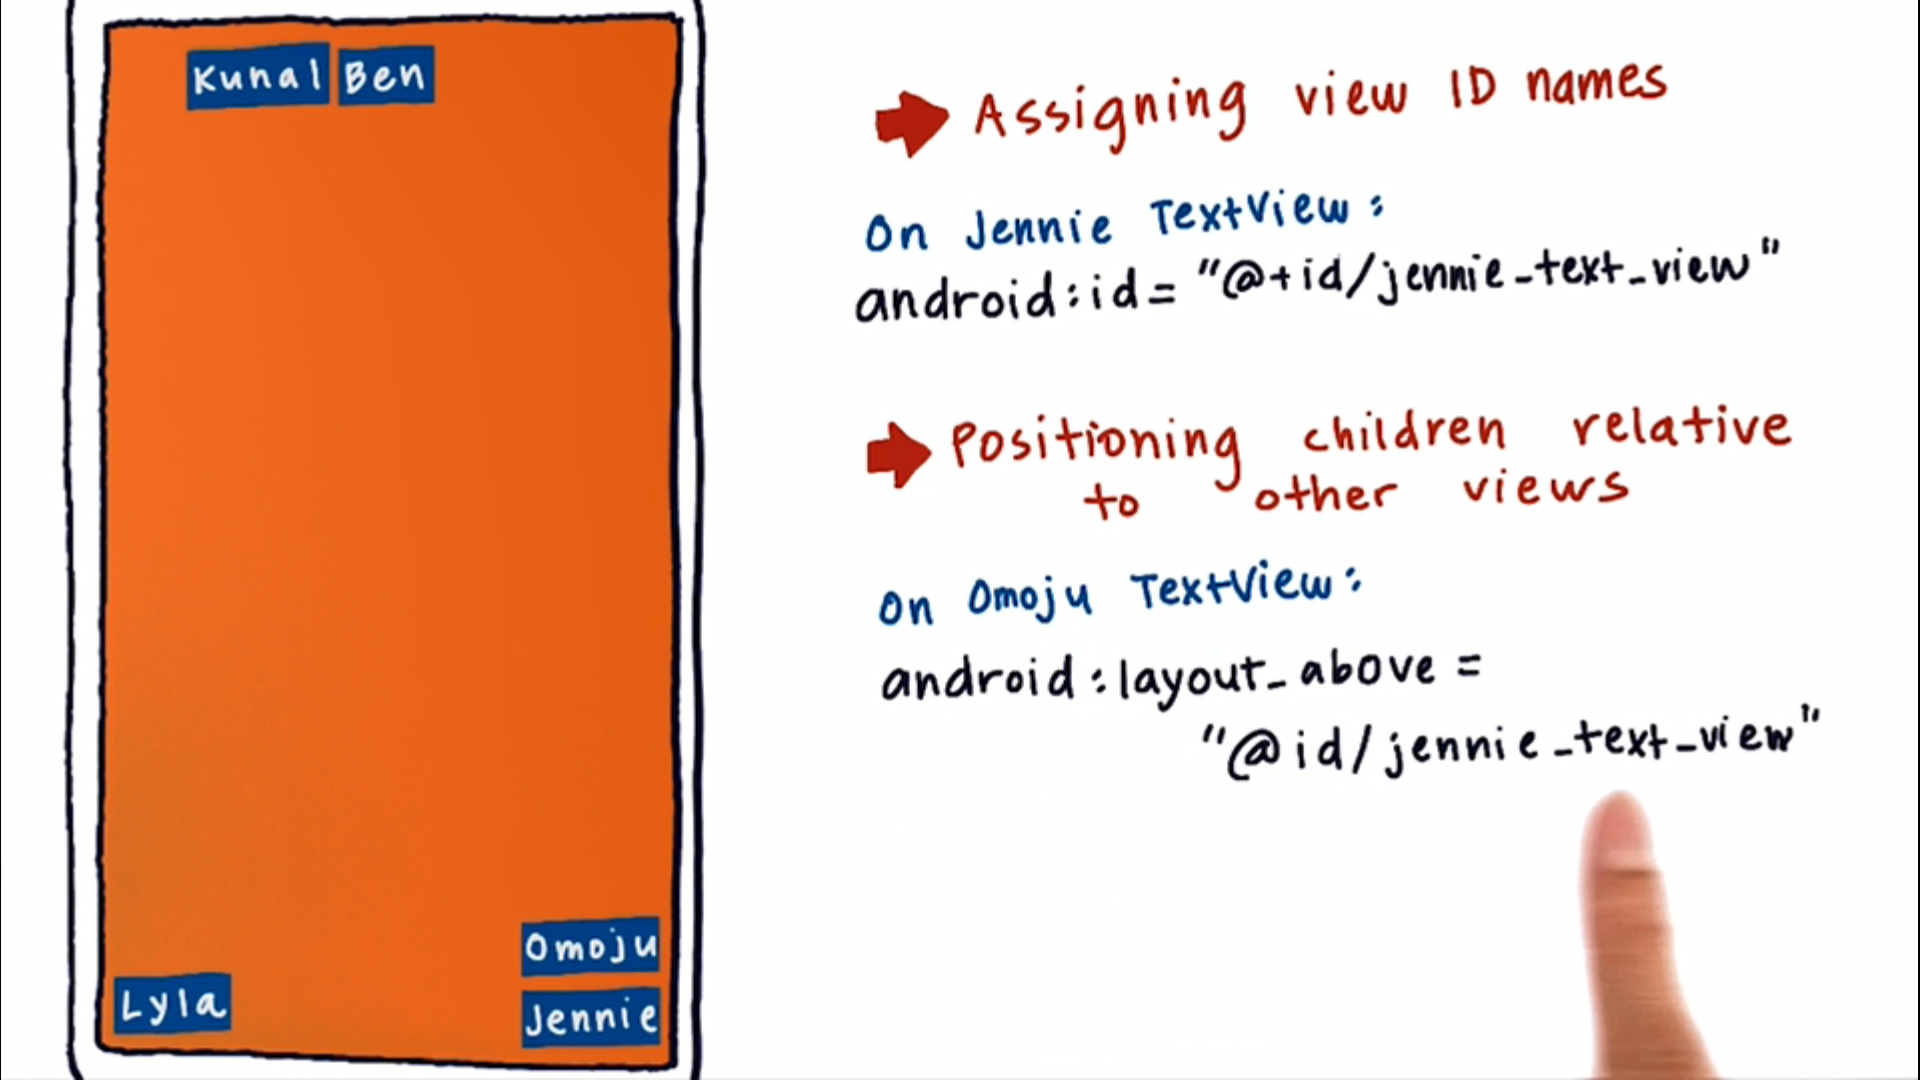 Kunal Ben
Assigning view ID names
On Jennie TextView:
android:id= "@+id/jennie_text_view"
Positioning children relative
to other views
On Omoju TextView:
android:layout_above =
"@id/jennie_text_view"
Omoju
Lyla
Jennie